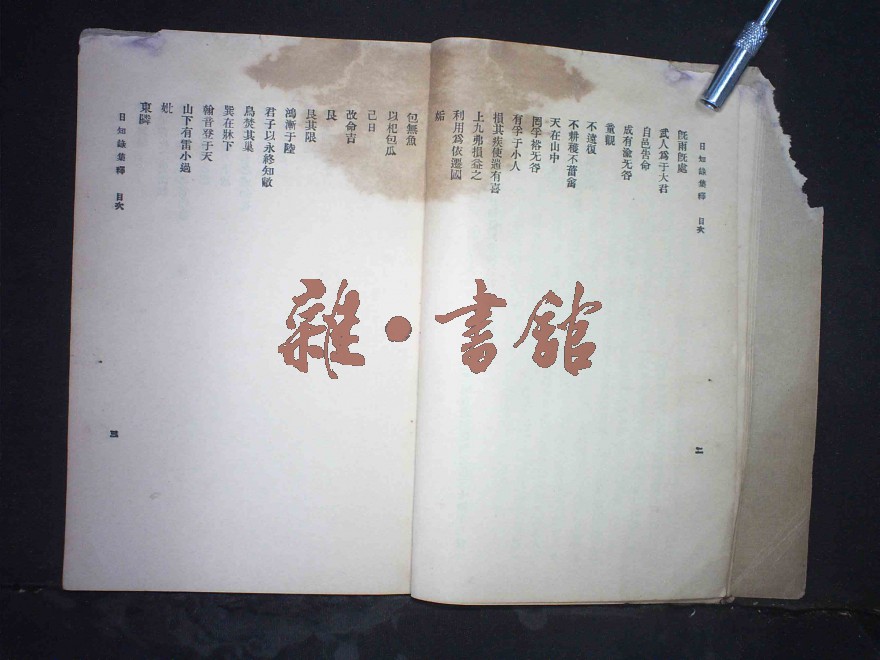 日知錄集釋 目次
旣雨旣處
武人爲于大君
自邑告命
成有渝无咎
童觀
不遠復
不耕穫不菑畬
天在山中
罔孚裕无咎
有孚于小人
損其疾使遄有喜
上九弗損益之
利用爲依遷國
姤
二
包無魚
以杞包瓜
己日
改命吉
艮
艮其限
鴻漸于陸
君子以永終知敝
鳥焚其巢
巽在牀下
翰音登于天
山下有雷小過
妣
東隣
日知錄集釋 目次
三
雜·書館